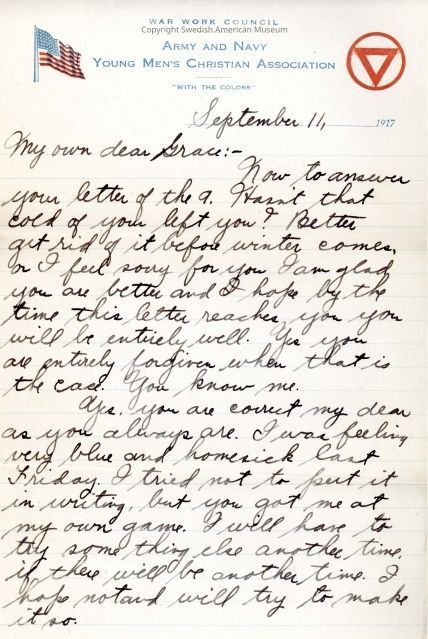 WAR WORK COUNCIL
Copyright Swedish American Museum
ARMY AND NAVY
YOUNG MEN'S CHRISTIAN ASSOCIATION
"WITH THE COLORS"
September 11, 1917
My own dear Grace:-
Now to answer
your letter of the 9. Hasn't that
cold of your left you? Better
get rid of it before winter comes,
or I feel sorry for you. I am glad
you are better and I hope by the
time this letter reaches you you
will be entirely well. Yes you
are entirely forgiven when that is
the case. You know me.
Yes, you are correct my dear
as you always are. I was feeling
very blue and homesick last
Friday. I tried not to put it
in writing, but you got me at
my own game. I will have to
try some thing else another time,
if there will be another time. I
hope not and will try to make
it so.